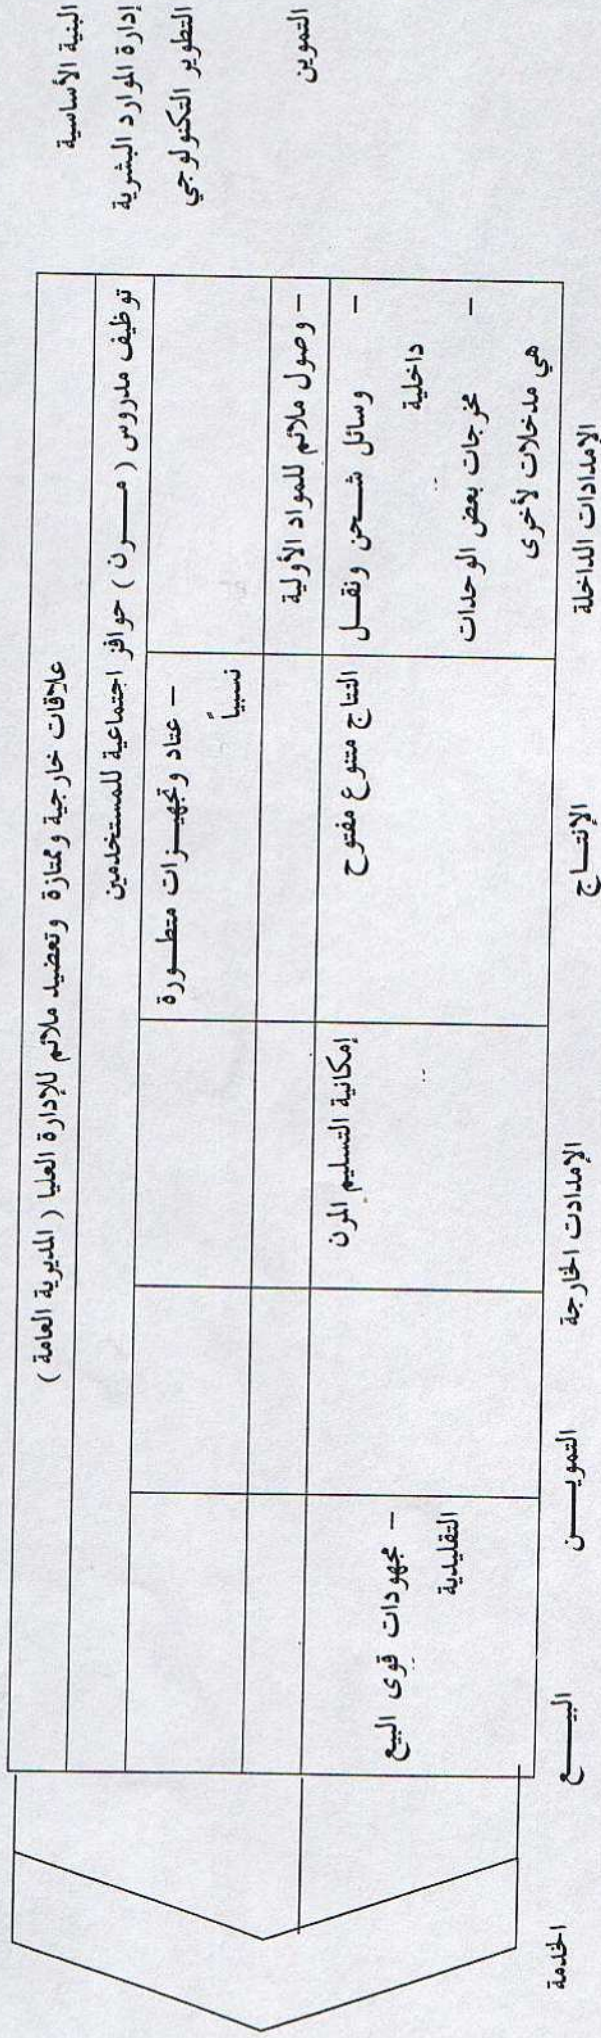 البنية الأساسية
إدارة الموارد البشرية
التطوير التكنولوجي
التموين
علاقات خارجية وممتازة وتعضيد ملائم للإدارة العليا ( المديرية العامة )
توظيف مدروس ( مــــرن ) حوافز اجتماعية للمستخدمين
– عتاد وتجهيـزات متطـورة
نسبياً
– وصول ملائم للمواد الأولية
– وسائل شـحن ونقـل
داخلية
– مخرجات بعض الوحدات
هي مدخلات لأخرى
النتاج متنوع مفتوح
إمكانية التسليم المرن
– مجهودات قوى البيع
التقليدية
الإمدادات الداخلة
الإنتـاج
الإمدادت الخارجة
التمويـــن
البيـــع
الخدمة